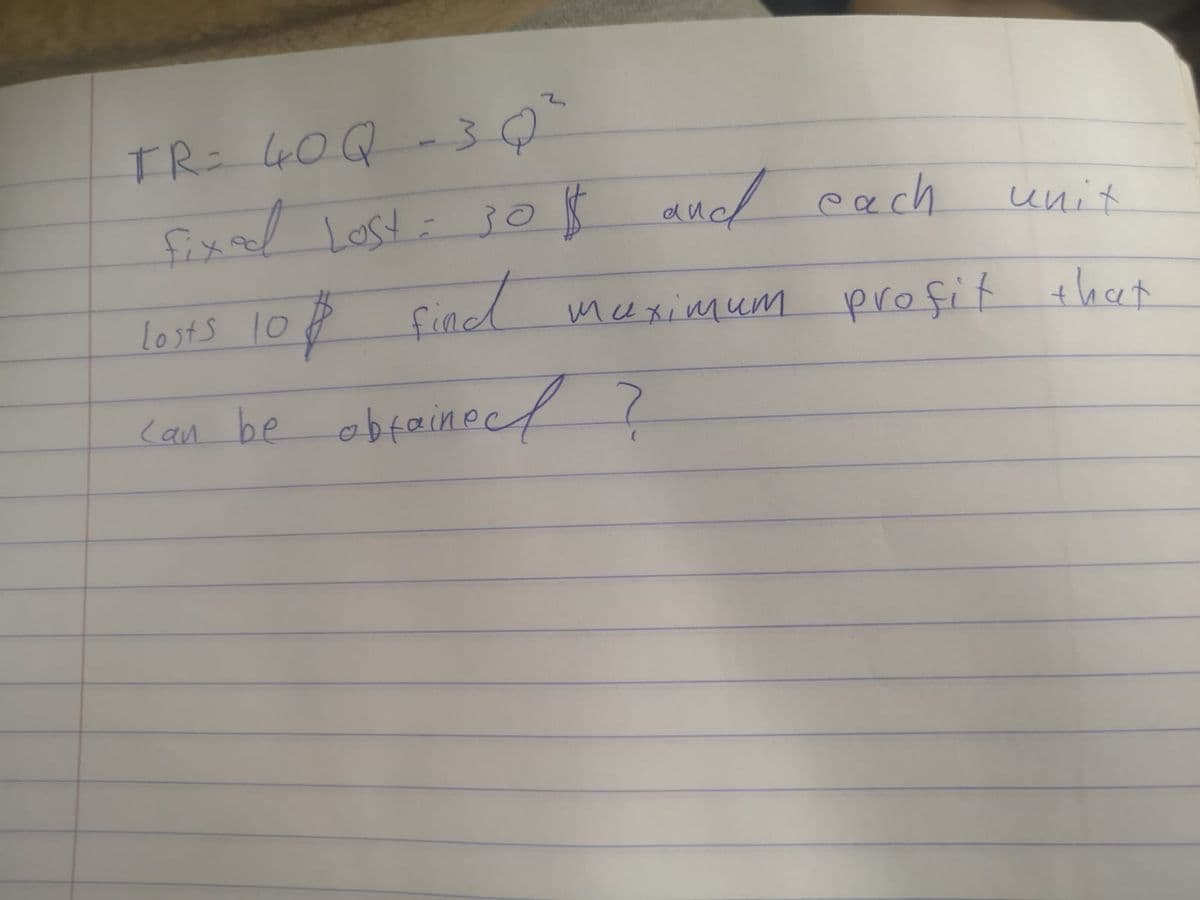 TR= 40Q - 3Q²
fixed Cost = 30 $ and each unit
Costs 10 $ find maximum profit that
can be obtained ?